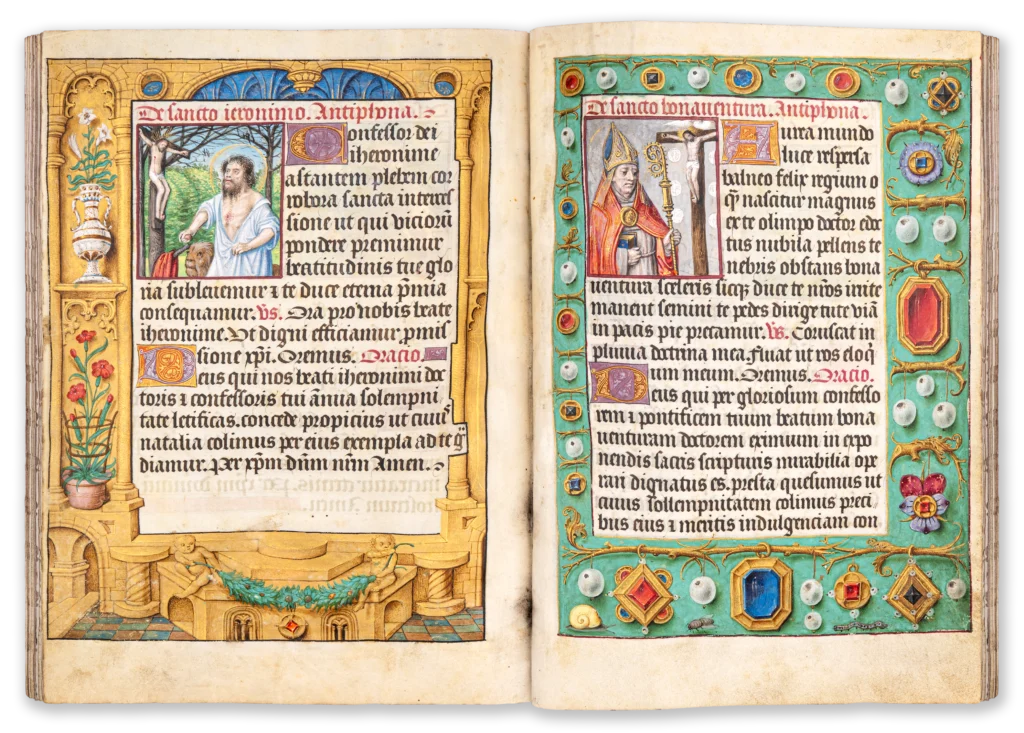 De sancto ieronimo. Antiphona.
Confessor dei
iheronime
astantem plebem cor
robora sancta interces
sione ut qui viciorũ
pondere premimur
beatitudinis tue glo
ria subleuemur ⁊ te duce eterna p̃mia
consequamur. Vs. Ora pro nobis beate
iheronime. Vt digni efficiamur ꝓmis
sione xp̃i. Oremus. Oracio.
Deus qui nos beati iheronimi doc
toris ⁊ confessoris tui ãnua solempni
tate letificas. concede propicius ut cuiꝰ
natalia colimus per eius exempla ad te g̃
diamur. Per xp̃m dñm nr̃m Amen.
De sancto bonauentura. Antiphona.
Aurea mundo
luce respersa
balneo felix regium o
q̃ nascitur magnus
exte olimpo doctor edoc
tus nubila pellens te
nebris obstans bona
uentura sceleris sicq; duce te nr̃os irrite
manent semini te pedes dirige tute viã
in pacis pie precamur. Vs. Coruscat in
pluuia doctrina mea. Fluat ut ros eloq̃
um meum. Oremus. Oracio.
Deus qui per gloriosum confesso
rem ⁊ pontificem tuum beatum bona
uenturam doctorem eximium in expo
nendis sacris scripturis mirabilia ope
rari dignatus es. presta quesumus ut
cuius sollempnitatem colimus preci
bus eius ⁊ meritis indulgenciam con